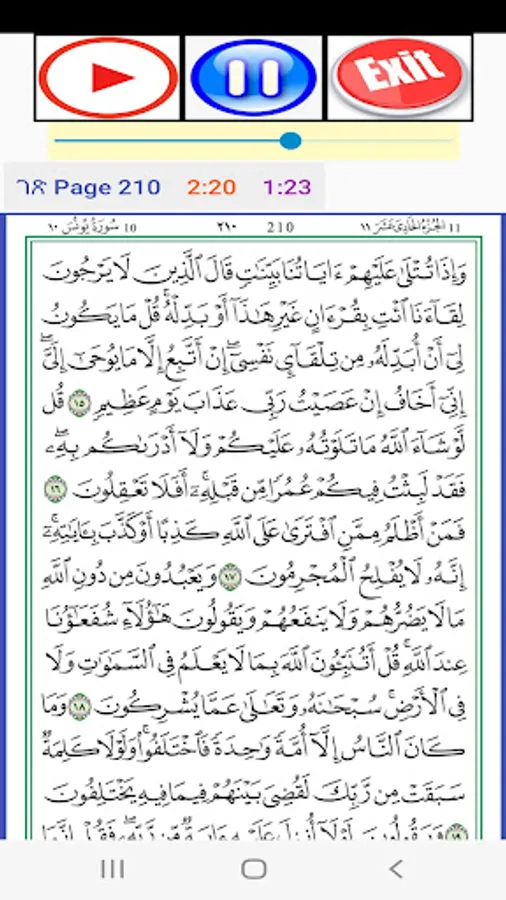 Exit
ገጽ Page 210 2:20 1:23
11 الجُزءُ الحَادِي عَشَرَ ١١ 210 ٢١٠ 10 سُورَةُ يُونُسَ ١٠
وَإِذَا تُتْلَىٰ عَلَيْهِمْ ءَايَاتُنَا بَيِّنَٰتٍ قَالَ ٱلَّذِينَ لَا يَرْجُونَ
لِقَآءَنَا ٱئْتِ بِقُرْءَانٍ غَيْرِ هَٰذَآ أَوْ بَدِّلْهُ ۚ قُلْ مَا يَكُونُ
لِىٓ أَنْ أُبَدِّلَهُۥ مِن تِلْقَآئِ نَفْسِىٓ ۖ إِنْ أَتَّبِعُ إِلَّا مَا يُوحَىٰٓ إِلَىَّ ۖ
إِنِّىٓ أَخَافُ إِنْ عَصَيْتُ رَبِّى عَذَابَ يَوْمٍ عَظِيمٍ ١٥ قُل
لَّوْ شَآءَ ٱللَّهُ مَا تَلَوْتُهُۥ عَلَيْكُمْ وَلَآ أَدْرَىٰكُم بِهِۦ ۖ
فَقَدْ لَبِثْتُ فِيكُمْ عُمُرًا مِّن قَبْلِهِۦٓ ۚ أَفَلَا تَعْقِلُونَ ١٦
فَمَنْ أَظْلَمُ مِمَّنِ ٱفْتَرَىٰ عَلَى ٱللَّهِ كَذِبًا أَوْ كَذَّبَ بِـَٔايَٰتِهِۦٓ ۚ
إِنَّهُۥ لَا يُفْلِحُ ٱلْمُجْرِمُونَ ١٧ وَيَعْبُدُونَ مِن دُونِ ٱللَّهِ
مَا لَا يَضُرُّهُمْ وَلَا يَنفَعُهُمْ وَيَقُولُونَ هَٰٓؤُلَآءِ شُفَعَٰٓؤُنَا
عِندَ ٱللَّهِ ۚ قُلْ أَتُنَبِّـُٔونَ ٱللَّهَ بِمَا لَا يَعْلَمُ فِى ٱلسَّمَٰوَٰتِ وَلَا
فِى ٱلْأَرْضِ ۚ سُبْحَٰنَهُۥ وَتَعَٰلَىٰ عَمَّا يُشْرِكُونَ ١٨ وَمَا
كَانَ ٱلنَّاسُ إِلَّآ أُمَّةً وَٰحِدَةً فَٱخْتَلَفُوا۟ ۚ وَلَوْلَا كَلِمَةٌ
سَبَقَتْ مِن رَّبِّكَ لَقُضِىَ بَيْنَهُمْ فِيمَا فِيهِ يَخْتَلِفُونَ
١٩ وَيَقُولُونَ لَوْلَآ أُنزِلَ عَلَيْهِ ءَايَةٌ مِّن رَّبِّهِۦ ۖ فَقُلْ إِنَّمَا